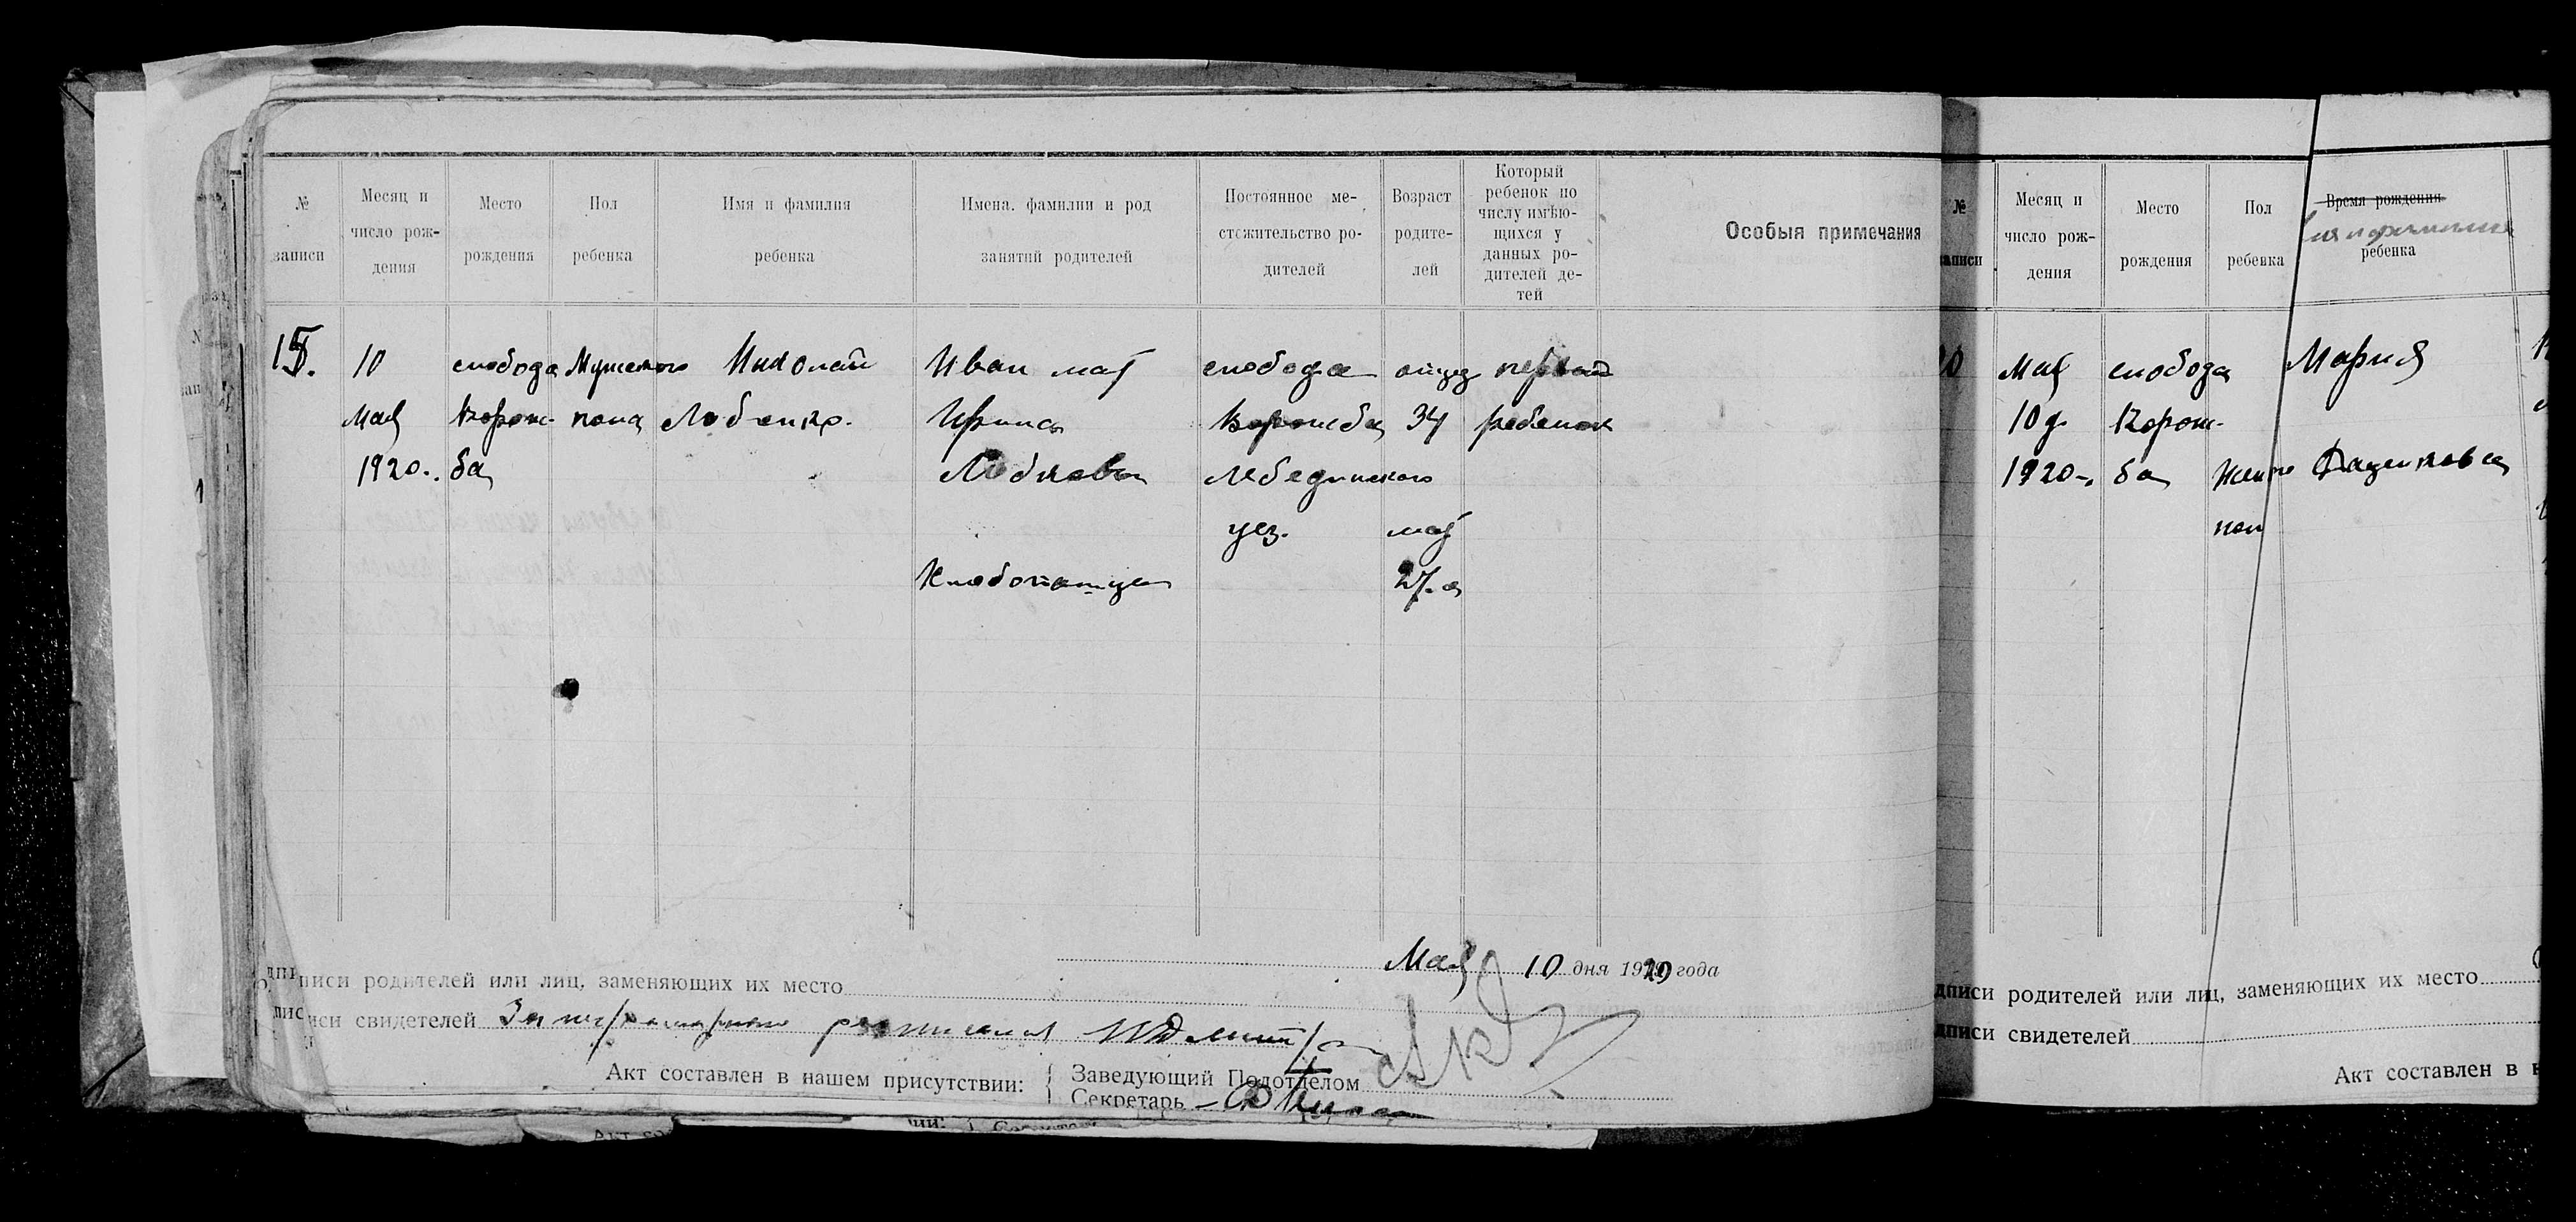 № записи
Месяц и число рож-дения
Место рождения
Пол ребенка
Имя и фамилия ребенка
Имена, фамилии и род занятий родителей
Постоянное ме-стожительство ро-дителей
Возраст родите-лей
Который ребенок по числу имѣю-щихся у данных ро-дителей де-тей
Особыя примечания
15.
10 Мая 1920.
слобода Ворож-ба
Мужского пола
Николай Лобенко.
Иван мат Ирина
Хлебопашцы
слобода Ворожба Лебединского уез.
отцу 34
мат 27.
первый ребенок
Мая 10 дня 1920 года
писи родителей или лиц, заменяющих их место
иси свидетелей За расписался
Акт составлен в нашем присутствии:
Заведующий Подотделом
Секретарь
№ аписи
Месяц и число рож-дения
Место рождения
Пол ребенка
Время рождения
ребенка
Мая 10 д. 1920.
слобода Ворож-ба
Женс пол
Мария Даценкова
дписи родителей или лиц, заменяющих их место
дписи свидетелей
Акт составлен в н